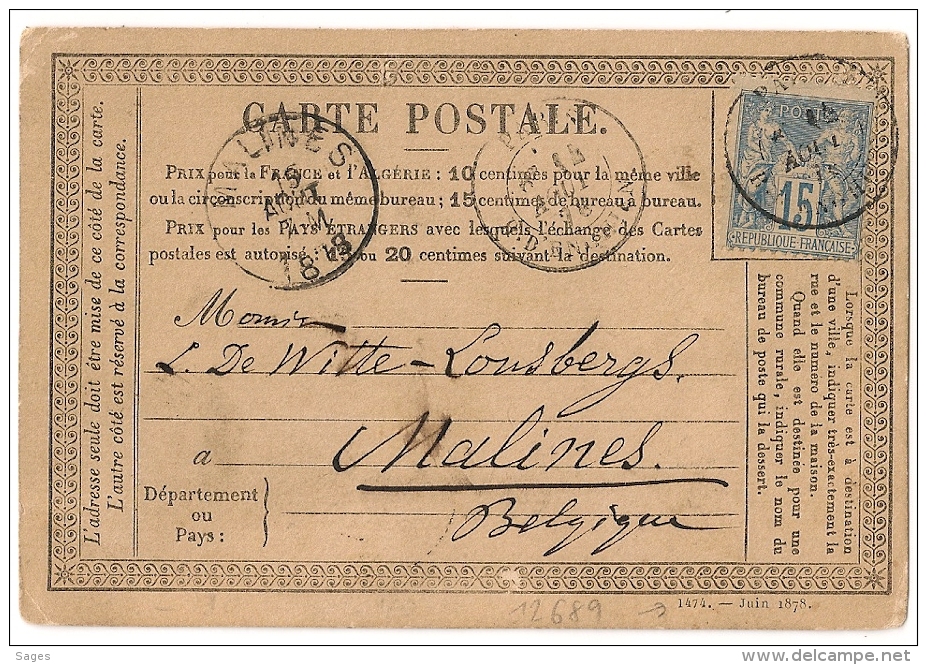 CARTE POSTALE.
PRIX pour la FRANCE et l'ALGÉRIE : 10 centimes pour la même ville
ou la circonscription du même bureau ; 15 centimes de bureau à bureau.
PRIX pour les PAYS ÉTRANGERS avec lesquels l'échange des Cartes
postales est autorisé : 15 ou 20 centimes suivant la destination.
MALINES
15
AOUT
M
1878
15
AOUT
POSTE
15
REPUBLIQUE FRANÇAISE
L'adresse seule doit être mise de ce côté de la carte.
L'autre côté est réservé à la correspondance.
Monsieur
L. De Witte-Lousbergs.
a Malines.
Département
ou
Pays :
Belgique
Lorsque la carte est à destination
d'une ville, indiquer très-exactement la
rue et le numéro de la maison.
Quand elle est destinée pour une
commune rurale, indiquer le nom du
bureau de poste qui la dessert.
12689
1474. — Juin 1878.
Sages
www.delcampe.net